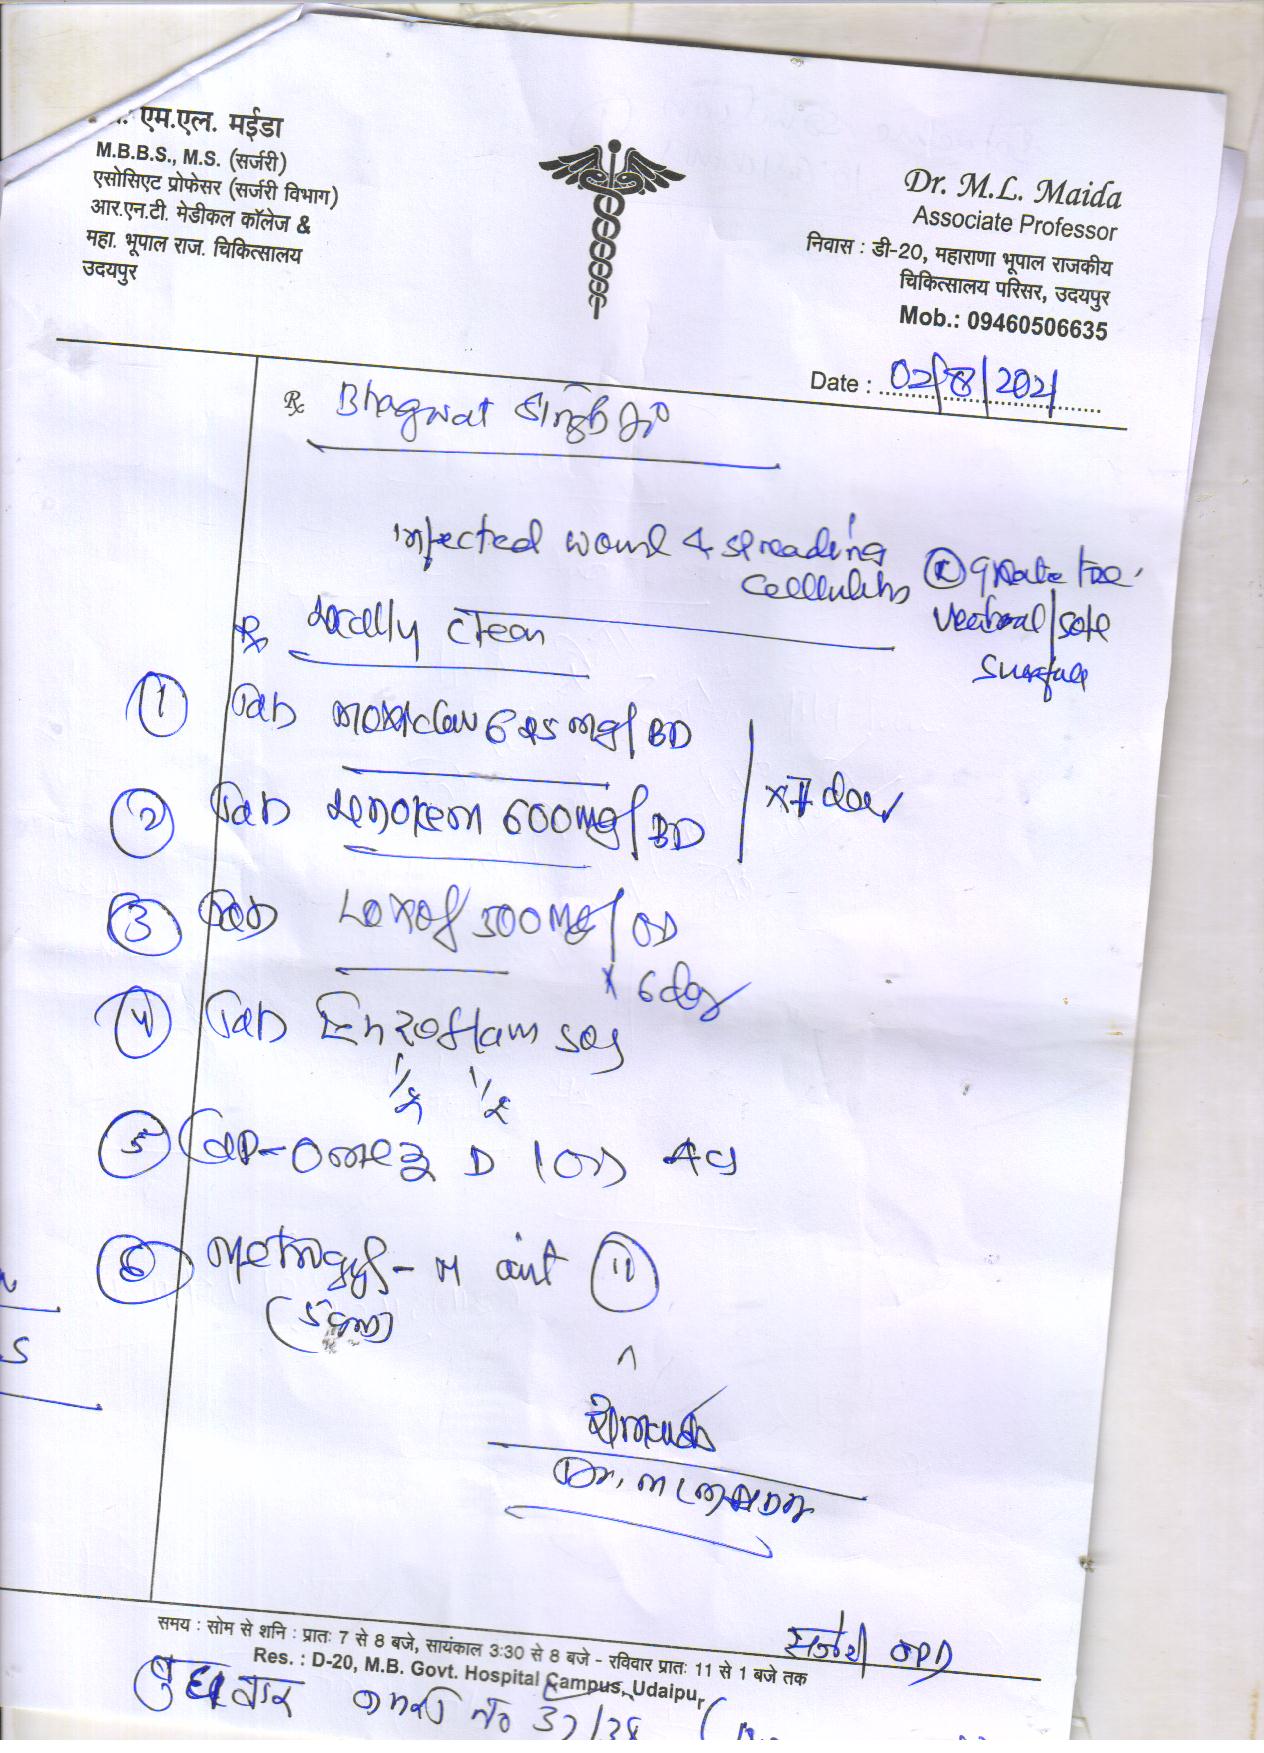 एम.एल. मईडा
M.B.B.S., M.S. (सर्जरी)
एसोसिएट प्रोफेसर (सर्जरी विभाग)
आर.एन.टी. मेडीकल कॉलेज &
महा. भूपाल राज. चिकित्सालय
उदयपुर
Dr. M.L. Maida
Associate Professor
निवास : डी-20, महाराणा भूपाल राजकीय
चिकित्सालय परिसर, उदयपुर
Mob.: 09460506635
Date : 02/8/2021
Rx Bhagwat Singh Ji
infected wound & spreading
cellulitis (R) great toe
ventral/sole
surface
Rx Locally clean
(1) Tab moxclav 625 mg/BD
x 7 day
(2) Tab 600mg/BD
(3) Tab Loxof 500mg/OD
x 6 day
(4) Tab Enzoflam sos
1/2 1/2
(5) Cap-Omez D 1 OD AC
(6) metrogyl-M oint (11)
Dr. M L MAIDA
समय : सोम से शनि : प्रातः 7 से 8 बजे, सायंकाल 3:30 से 8 बजे - रविवार प्रातः 11 से 1 बजे तक
Res. : D-20, M.B. Govt. Hospital Campus, Udaipur
सर्जरी OPD
बुधवार कमरा नं 37/38
S